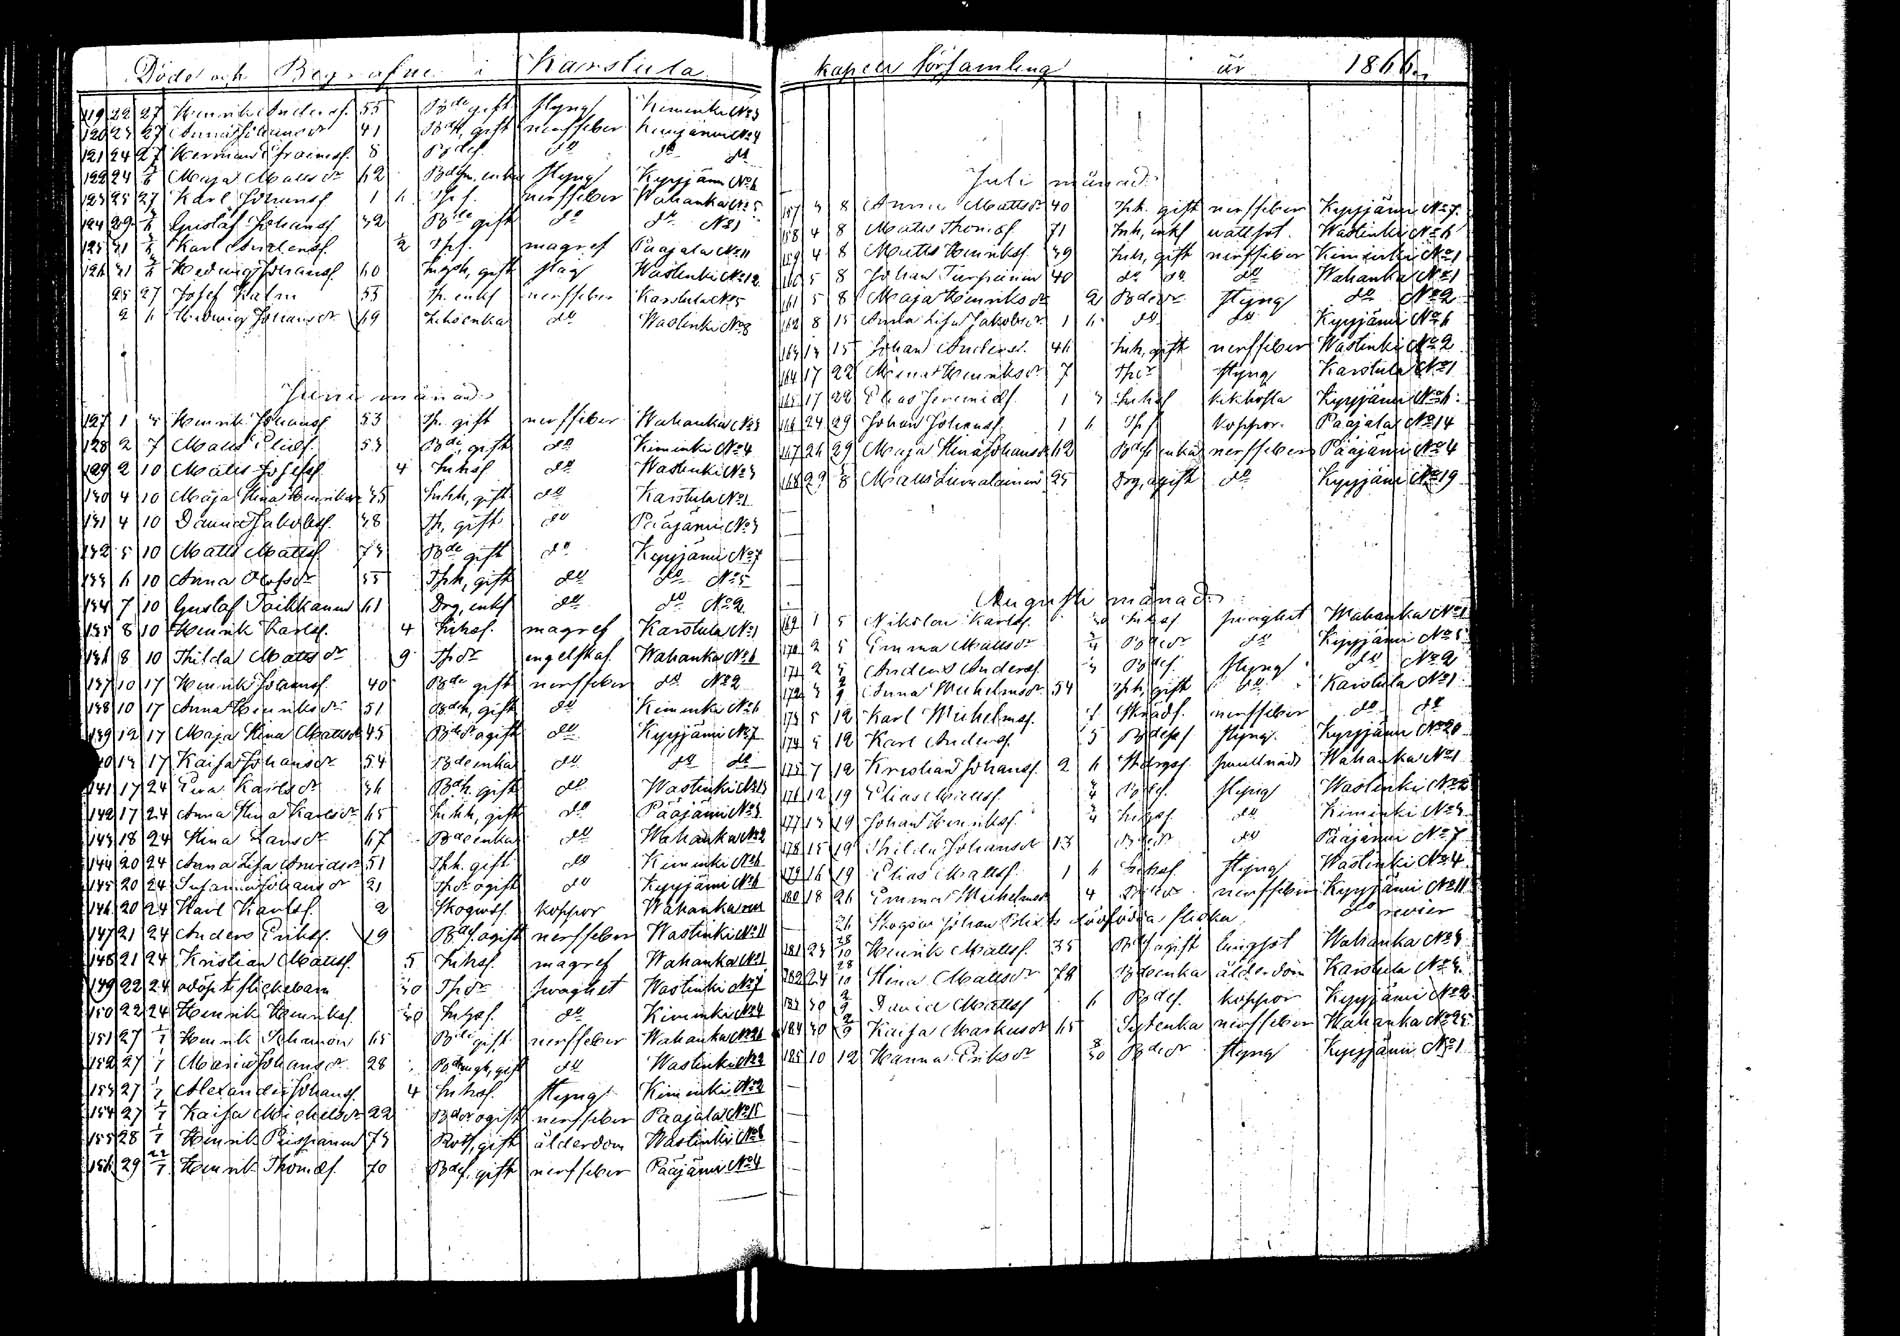 Döde och Begrafne i Karstula
119 22 27 Henrik Andersf. 55 Bde gift styng Kiminki No 3
120 23 27 Anna Johansdr 41 Bdeh, gift nerffeber Kyyjärvi No 4
121 24 27 Herman Efraimsf. 8 Bdef. do do do
122 24 Maja Mattsdr 62 enka styng Kyyjärvi No 6
123 25 27 Karl Johansf. 1 6 Thf. nerffeber Wahanka No 5
124 29 Gustaf Johansf. 32 Bde gift do do No 1
125 31 Karl 1/2 Thf. magref Pääjala No 11
126 31 Hedvig Johansf. 60 gift slag Wastinki No 12
25 27 Josef Kalm 55 Th. enkl nerffeber Karstula No 5
2 6 Hedwig Johansdr 69 enka do Wastinki No 8
Juni månad
127 1 3 Henrik Johansf. 53 Th. gift nerffeber Wahanka No 3
128 2 7 Matts Eliasf. 53 Bde gift do Kiminki No 4
129 2 10 Matts Josefsf. 4 Inhsf. do Wastinki No 3
130 4 10 Maja Stina Henriksdr 35 Inhh, gift do Karstula No 1
131 4 10 Daniel Jakobsf. 38 Th, gift do Pääjärvi No 3
132 5 10 Matts Mattsf. 73 Bde gift do Kyyjärvi No 7
133 6 10 Anna Olofsdr 55 Thh, gift do do No 5
134 7 10 Gustaf Paikkanen 61 Drg, enkl do do No 2
135 8 10 Henrik Karlsf. 4 Inhsf. magref Karstula No 1
136 8 10 Thilda Mattsdr 9 Thdr engelskaf. Wahanka No 6
137 10 17 Henrik Johansf. 40 Bde gift nerffeber do No 2
138 10 17 Anna Henriksdr 51 Bdeh, gift do Kiminki No 6
139 12 17 Maja Stina Mattsdr 45 Bdedr ogift do Kyyjärvi No 7
140 13 17 Kaisa Johansdr 54 Bdeenka do do do
141 17 24 Eva Karlsdr 36 Bdeh. gift do Wastinki No 13
142 17 24 Anna Stina Karlsdr 65 Inhh, gift do Pääjärvi No 3
143 18 24 Stina Larsdr 67 Bdeenka do Wahanka No 2
144 20 24 Anna Lisa 51 Thh. gift do Kiminki No 6
145 20 24 Susanna Johansdr 21 Thdr ogift do Kyyjärvi No 6
146 20 24 Karl Karlsf. 2 Skogwsf. koppor Wahanka
147 21 24 Anders Eriksf. 19 Bdef. ogift nerffeber Wastinki No 11
148 21 24 Kristian Mattsf. 5 Inhsf. magref Wahanka No 1
149 22 24 odöpt flickebarn Thdr swaghet Wastinki No 7
150 22 24 Henrik Henriksf. Inhsf. do Kiminki No 4
151 27 1/7 Henrik 65 Bde gift nerffeber Wahanka No 26
152 27 1/7 Maria Johansdr 28 gift do Wastinki No 2
153 27 1/7 Alexander Johansf. 4 Inhsf. styng Kiminki No 2
154 27 1/7 Kaisa Michelsdr 22 Bdedr ogift nerffeber Pääjala No 15
155 28 1/7 Henrik Piispanen 73 gift ålderdom Wastinki No 8
156 29 Henrik Thomasf. 70 Bdef, gift nerffeber Pääjärvi No 4
kapell församling år 1866
Juli månad
157 3 8 Anna Mattsdr 40 Thh. gift nerffeber Kyyjärvi No 7
158 4 8 Matts Thomasf. 71 Inh, enkl wattsot. Wastinki No 6
159 4 8 Matts Henriksf. 39 Inh, gift nerffeber Kiminki No 1
160 5 8 Johan Turpeinen 40 do do do Wahanka No 1
161 5 8 Maja Henriksdr 2 Bdedr styng do No 2
162 8 15 Anna Lisa Jakobsdr 1 6 do do Kyyjärvi No 6
163 13 15 Johan Andersf. 46 Inh, gift nerffeber Wastinki No 2
164 17 22 Henriksdr 7 Thdr styng Karstula No 1
165 17 22 Elias Jeremiasf. 1 3 Inhsf kikhosta Kyyjärvi No 6
166 24 29 Johan Johansf. 1 6 Thf koppor. Pääjala No 14
167 26 29 Maja Stina Johansdr 62 enka nerffeber Pääjärvi No 4
168 29 5/8 Matts Liimatainen 25 Drg, ogift do Kyyjärvi No 19
Augusti månad
169 1 5 Nikolai Karlsf. Inhsf swaghet Wahanka No 1
170 2 5 Emma Mattsdr Bdedr do Kyyjärvi No 5
171 2 5 Anders Andersf. Bdef. styng do No 2
172 3 Anna Wilhelmsdr 54 Thh, gift do Karstula No 1
173 5 12 Karl Wilhelmsf. Skrädf. nerffeber do do
174 5 12 Karl Andersf. 5 styng. Kyyjärvi No 20
175 7 12 Kristian Johansf. 2 6 Wahanka No 1
176 12 19 Elias Mattsf. Bdef. styng Wastinki No 2
177 13 19 Johan Henriksf. Inhsf do Kiminki No 3
178 15 19 Thilda Johansdr 13 Bdedr do Pääjärvi No 7
179 16 19 Elias Mattsf. 1 6 Inhsf styng Wastinki No 4
180 18 26 Emma Wilhelmsdr 4 Bdedr nerffeber Kyyjärvi No 11
26 Johan dödfödda flicka do revier
181 23 Henrik Mattsf. 35 ogift lungsot Wahanka No 3
182 24 Stina Mattsdr 78 Bdeenka ålderdom Karstula No 3
183 30 2/9 Daniel Mattsf. 6 Bdef. koppor Kyyjärvi No 2
184 30 2/9 Kaisa Markusdr 65 Sytenka nerffeber Wahanka No 25
185 10 12 Hanna Eriksdr Bdedr styng Kyyjärvi No 1